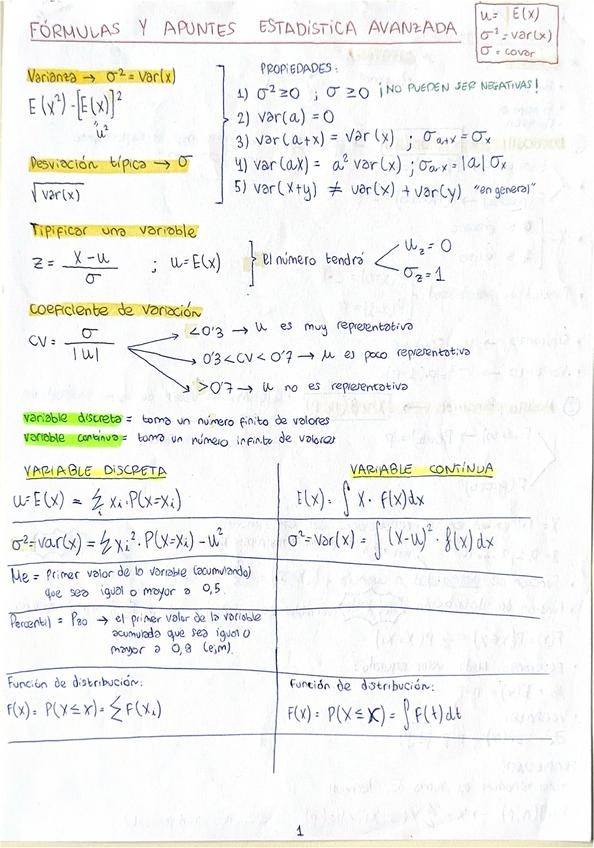 FÓRMULAS Y APUNTES ESTADÍSTICA AVANZADA
u = E(x)
σ² = var(x)
σ = covar
Varianza → σ² = Var(x)
E(x²) - [E(x)]²
u²
Desviación típica → σ
√var(x)
PROPIEDADES:
1) σ² ≥ 0 ; σ ≥ 0 ¡NO PUEDEN SER NEGATIVAS!
2) var(a) = 0
3) var(a+x) = var(x) ; σa+x = σx
4) var(ax) = a² var(x) ; σa·x = |a| σx
5) var(x+y) ≠ var(x) + var(y) "en general"
Tipificar una variable
z = x - u / σ ; u = E(x) } el número tendrá
uz = 0
σz = 1
Coeficiente de variación
CV = σ / |u|
<0'3 → u es muy representativa
0'3 < CV < 0'7 → u es poco representativa
>0'7 → u no es representativa
variable discreta = toma un número finito de valores
variable continua = toma un número infinito de valores
VARIABLE DISCRETA
u = E(x) = ∑i xi · P(x=xi)
σ² = var(x) = ∑ xi² · P(x=xi) - u²
Me = Primer valor de la variable (acumulando)
que sea igual o mayor a 0,5.
Percentil = P80 → el primer valor de la variable
acumulada que sea igual o
mayor a 0,8 (ejm).
Función de distribución:
F(x) = P(X ≤ x) = ∑ F(xi)
VARIABLE CONTÍNUA
E(x) = ∫ x · f(x)dx
σ² = Var(x) = ∫ (x-u)² · f(x)dx
Función de distribución:
F(x) = P(X ≤ x) = ∫ F(t)dt
1